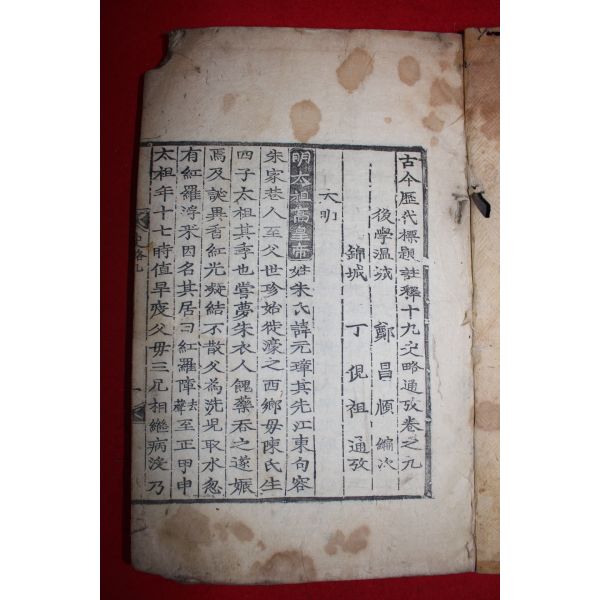 古今歷代標題註釋十九史略通攷卷之九
後學溫城 鄭昌順 編次
錦城 丁俔祖 通攷
大明
明太祖高皇帝姓朱氏諱元璋其先江東句容
朱家巷人至父世珍始徙濠之西鄉母陳氏生
四子太祖其季也嘗夢朱衣人餽藥吞之遂娠
焉及誕異香紅光凝結不散父爲洗兒取水忽
有紅羅浮來因名其居曰紅羅障至正甲申
太祖年十七時値旱疫父母三兄相繼病沒乃